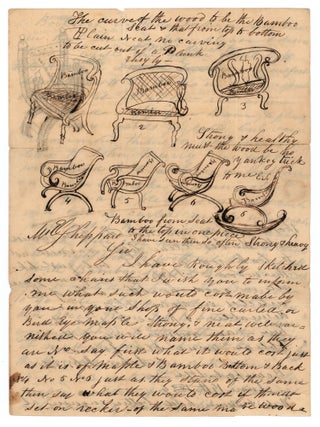 The curve of the wood to be the Bamboo
Seat & that from top to bottom
Plain Neat no carving
to be cut out of a Plank
Bamboo
2
3
Strong & healthy
must the wood be no
Yankey trick
to me
Bamboo
Bamboo
Bamboo
4
5
6
6
Bamboo from seat
to the top in one piece
I have seen them so often Strong & heavy
Mr Sheppard
Sir
I have roughly sketched
some chears that I wish you to inform
me what such would cost made by
you in your Shop of fine curled or
Bird Eye maple Strong & neat well var
nished you will name them as they
are No say first what it would cost just
as it is of Maple & Bamboo Bottom & Back
No 5 No just as they stand of the same
then say what they would cost if those
set on rockers of the same make woods